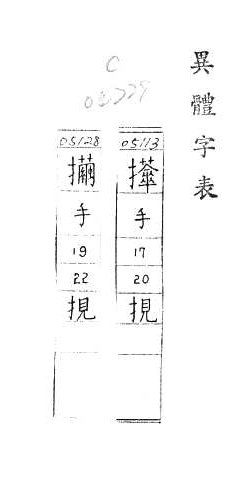 異體字表
05113
手
17
20
挸
05128
手
19
22
挸
C